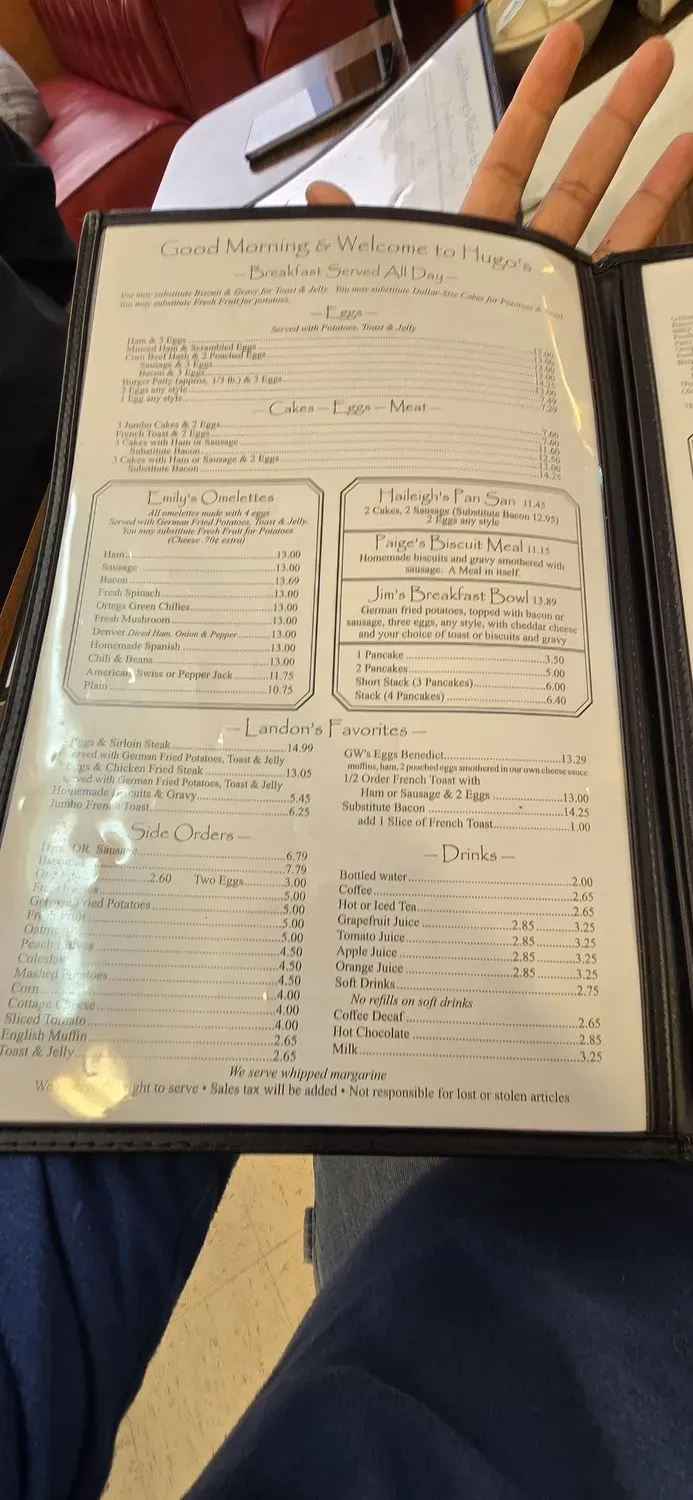 Good Morning & Welcome to Hugo's
– Breakfast Served All Day –
You may substitute Biscuit & Gravy for Toast & Jelly. You may substitute Dollar-Size Cakes for Potatoes & Toast.
You may substitute Fresh Fruit for potatoes.
– Eggs –
Served with Potatoes, Toast & Jelly
Ham & 3 Eggs
Minced Ham & Scrambled Eggs
Corn Beef Hash & 2 Poached Eggs
Sausage & 3 Eggs
Bacon & 3 Eggs
Burger Patty (approx. 1/3 lb.) & 3 Eggs
2 Eggs any style
1 Egg any style
– Cakes – Eggs – Meat –
3 Jumbo Cakes & 2 Eggs 7.60
French Toast & 2 Eggs 7.60
3 Cakes with Ham or Sausage 11.60
Substitute Bacon 12.50
3 Cakes with Ham or Sausage & 2 Eggs 13.00
Substitute Bacon 14.25
Emily's Omelettes
All omelettes made with 4 eggs
Served with German Fried Potatoes, Toast & Jelly.
You may substitute Fresh Fruit for Potatoes
(Cheese .70¢ extra)
Ham 13.00
Sausage 13.00
Bacon 13.69
Fresh Spinach 13.00
Ortega Green Chilies 13.00
Fresh Mushroom 13.00
Denver Diced Ham, Onion & Pepper 13.00
Homemade Spanish 13.00
Chili & Beans 13.00
American, Swiss or Pepper Jack 11.75
Plain 10.75
Haileigh's Pan San 11.45
2 Cakes, 2 Sausage (Substitute Bacon 12.95)
2 Eggs any style
Paige's Biscuit Meal 11.15
Homemade biscuits and gravy smothered with
sausage. A Meal in itself.
Jim's Breakfast Bowl 13.89
German fried potatoes, topped with bacon or
sausage, three eggs, any style, with cheddar cheese
and your choice of toast or biscuits and gravy
1 Pancake 3.50
2 Pancakes 5.00
Short Stack (3 Pancakes) 6.00
Stack (4 Pancakes) 6.40
– Landon's Favorites –
Eggs & Sirloin Steak 14.99
served with German Fried Potatoes, Toast & Jelly
Eggs & Chicken Fried Steak 13.05
served with German Fried Potatoes, Toast & Jelly
Homemade Biscuits & Gravy 5.45
Jumbo French Toast 6.25
GW's Eggs Benedict 13.29
muffins, ham, 2 poached eggs smothered in our own cheese sauce
1/2 Order French Toast with
Ham or Sausage & 2 Eggs 13.00
Substitute Bacon 14.25
add 1 Slice of French Toast 1.00
Side Orders –
Ham OR Sausage 6.79
Bacon 7.79
2.60 Two Eggs 3.00
French Fries 5.00
German Fried Potatoes 5.00
Fruit 5.00
Oatmeal 5.00
Peach Halves 4.50
Coleslaw 4.50
Mashed Potatoes 4.50
Corn 4.00
Cottage Cheese 4.00
Sliced Tomato 4.00
English Muffin 2.65
Toast & Jelly 2.65
– Drinks –
Bottled water 2.00
Coffee 2.65
Hot or Iced Tea 2.65
Grapefruit Juice 2.85 3.25
Tomato Juice 2.85 3.25
Apple Juice 2.85 3.25
Orange Juice 2.85 3.25
Soft Drinks 2.75
No refills on soft drinks
Coffee Decaf 2.65
Hot Chocolate 2.85
Milk 3.25
We serve whipped margarine
We right to serve • Sales tax will be added • Not responsible for lost or stolen articles